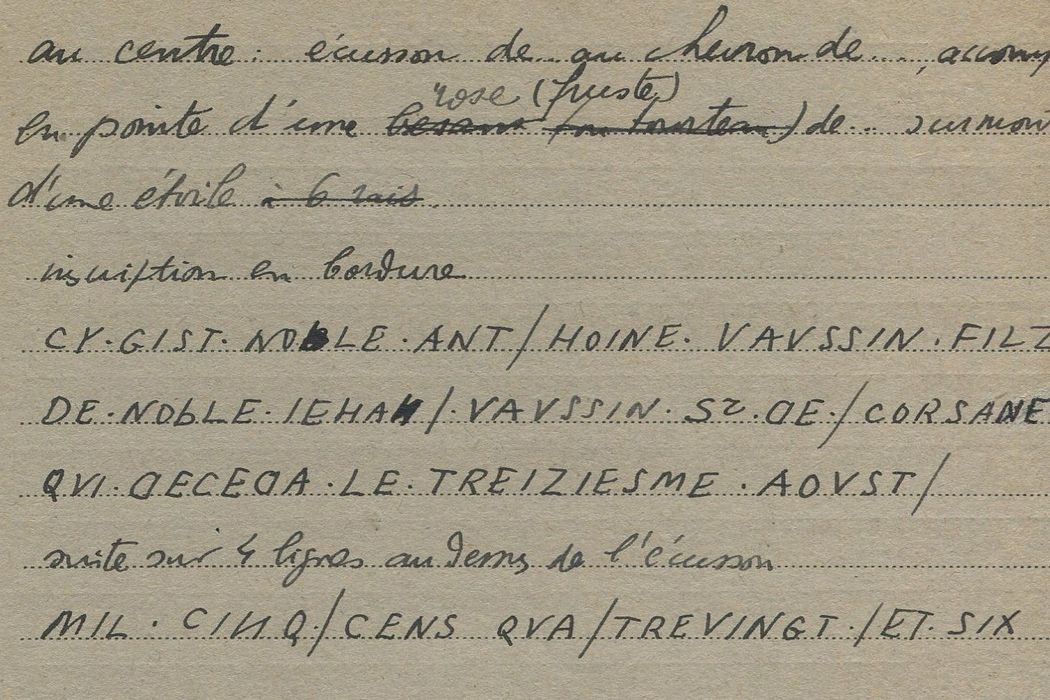 au centre : écusson de au chevron de ..., accomp
rose (fruste)
en pointe d'une besant (ou tourteau) de .. surmont
d'une étoile à 6 rais.
inscription en bordure
CY·GIST·NObLE·ANT/HOINE· VAVSSIN·FILZ
DE·NObLE·IEHAN/·VAVSSIN·Sr·DE·/CORSANE
QVI·DECEDA·LE·TREIZIESME·AOVST/
suite sur 4 lignes au dessus de l'écusson
MIL·CINQ/CENS QVA/TREVINGT·/ET·SIX